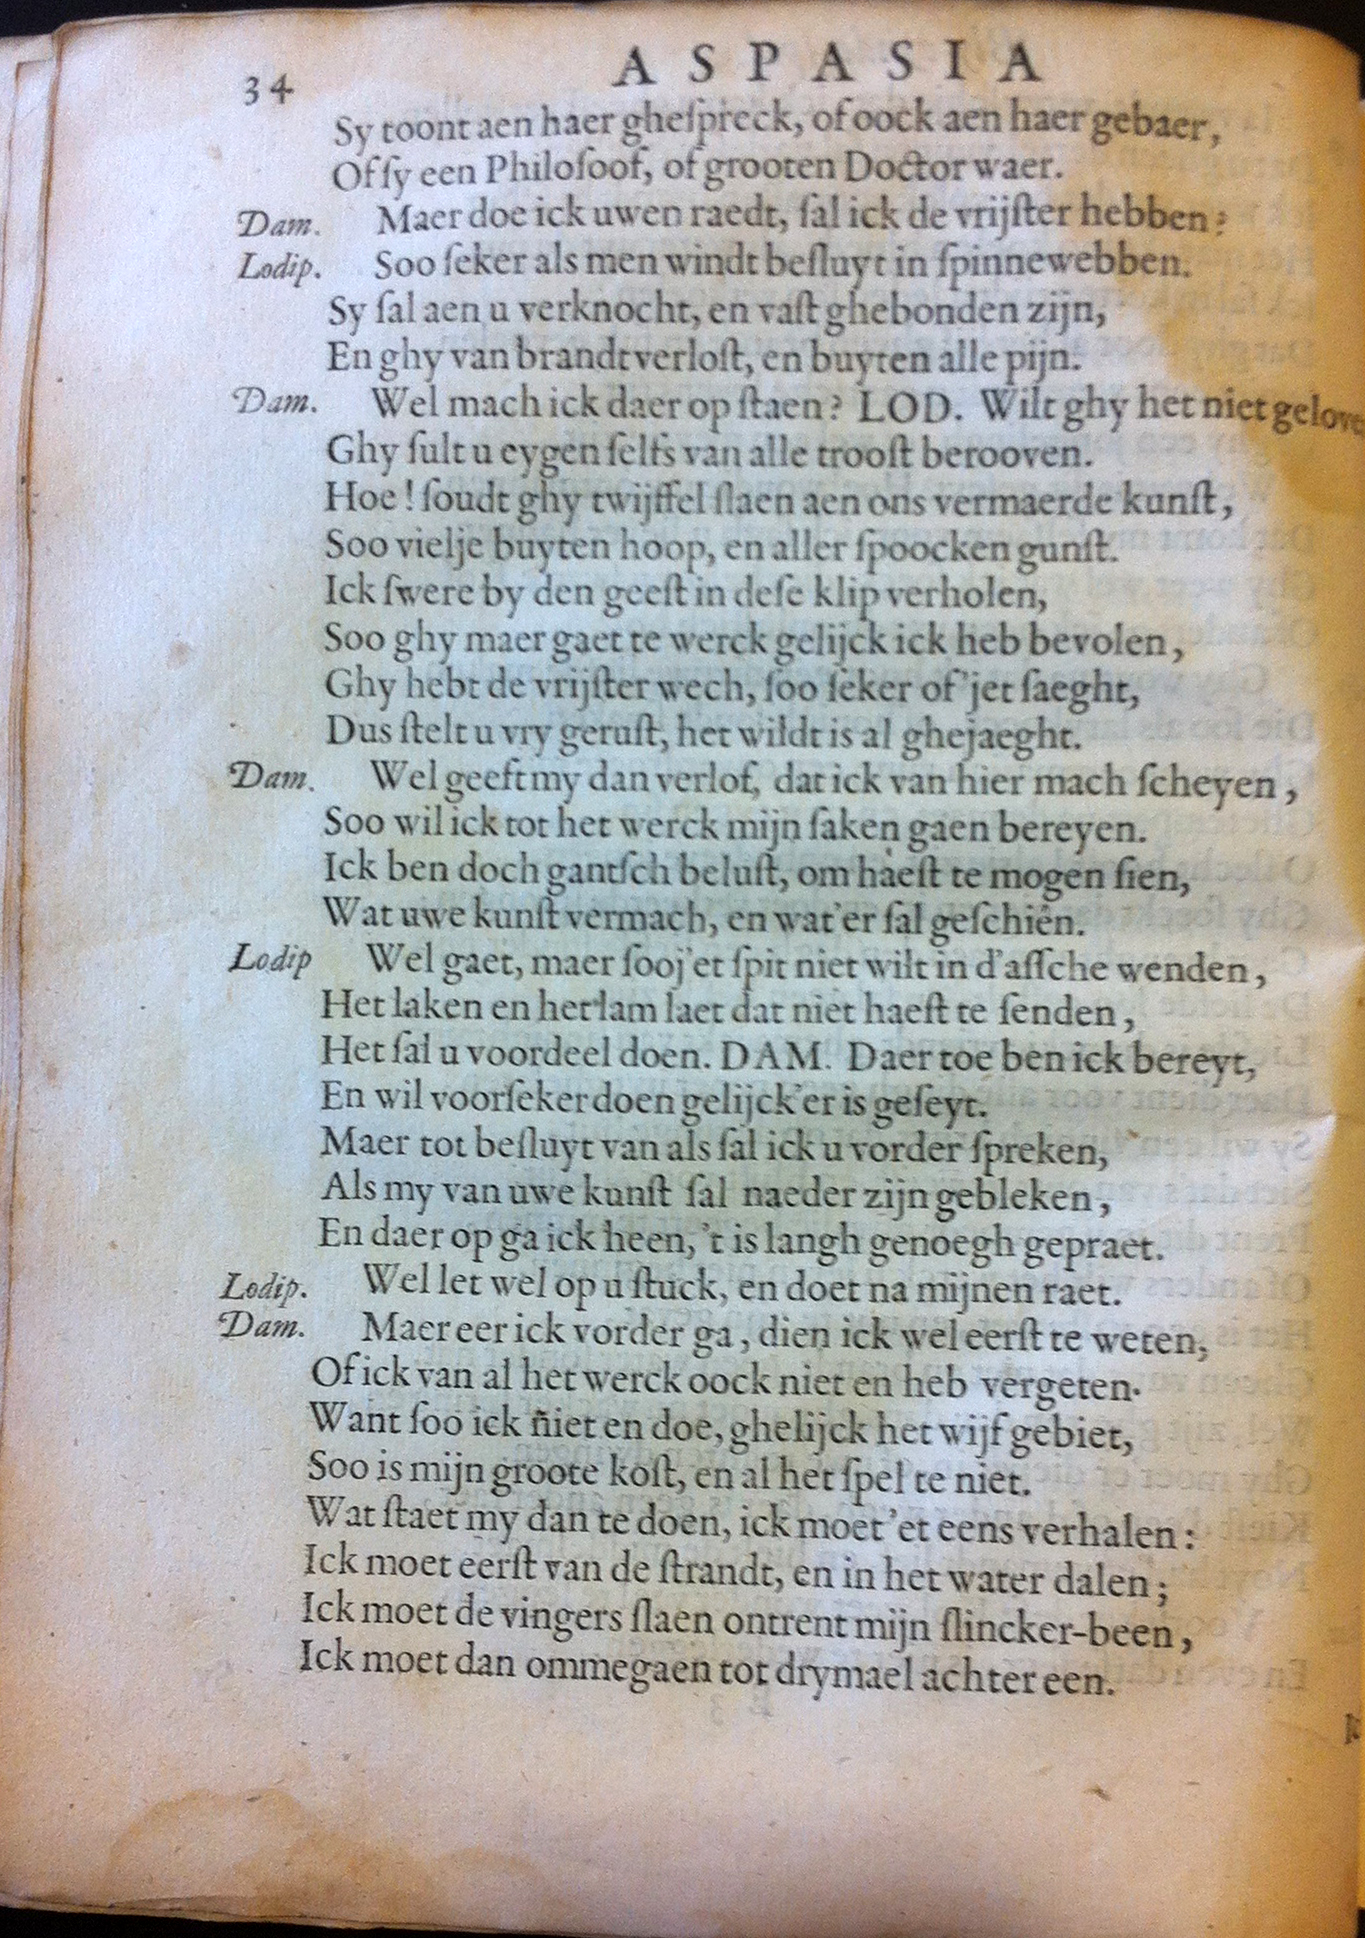 34 ASPASIA
Sy toont aen haer gheſpreck, of oock aen haer gebaer,
Of ſy een Philoſoof, of grooten Doctor waer.
Dam. Maer doe ick uwen raedt, ſal ick de vrijſter hebben?
Lodip. Soo ſeker als men windt beſluyt in ſpinnewebben.
Sy ſal aen u verknocht, en vaſt ghebonden zijn,
En ghy van brandt verloſt, en buyten alle pijn.
Dam. Wel mach ick daer op ſtaen? LOD. Wilt ghy het niet gelove
Ghy ſult u eygen ſelfs van alle trooſt berooven.
Hoe! ſoudt ghy twijffel ſlaen aen ons vermaerde kunſt,
Soo vielje buyten hoop, en aller ſpoocken gunſt.
Ick ſwere by den geeſt in deſe klip verholen,
Soo ghy maer gaet te werck gelijck ick heb bevolen,
Ghy hebt de vrijſter wech, ſoo ſeker of'jet ſaeght,
Dus ſtelt u vry geruſt, het wildt is al ghejaeght.
Dam. Wel geeft my dan verlof, dat ick van hier mach ſcheyen,
Soo wil ick tot het werck mijn ſaken gaen bereyen.
Ick ben doch gantſch beluſt, om haeſt te mogen ſien,
Wat uwe kunſt vermach, en wat'er ſal geſchiên.
Lodip Wel gaet, maer ſooj'et ſpit niet wilt in d'aſſche wenden,
Het laken en het lam laet dat niet haeſt te ſenden,
Het ſal u voordeel doen. DAM. Daer toe ben ick bereyt,
En wil voorſeker doen gelijck'er is geſeyt.
Maer tot beſluyt van als ſal ick u vorder ſpreken,
Als my van uwe kunſt ſal naeder zijn gebleken,
En daer op ga ick heen, 't is langh genoegh gepraet.
Lodip. Wel let wel op u ſtuck, en doet na mijnen raet.
Dam. Maer eer ick vorder ga, dien ick wel eerſt te weten,
Of ick van al het werck oock niet en heb vergeten.
Want ſoo ick niet en doe, ghelijck het wijf gebiet,
Soo is mijn groote koſt, en al het ſpel te niet.
Wat ſtaet my dan te doen, ick moet 'et eens verhalen:
Ick moet eerſt van de ſtrandt, en in het water dalen;
Ick moet de vingers ſlaen ontrent mijn ſlincker-been,
Ick moet dan ommegaen tot drymael achter een.